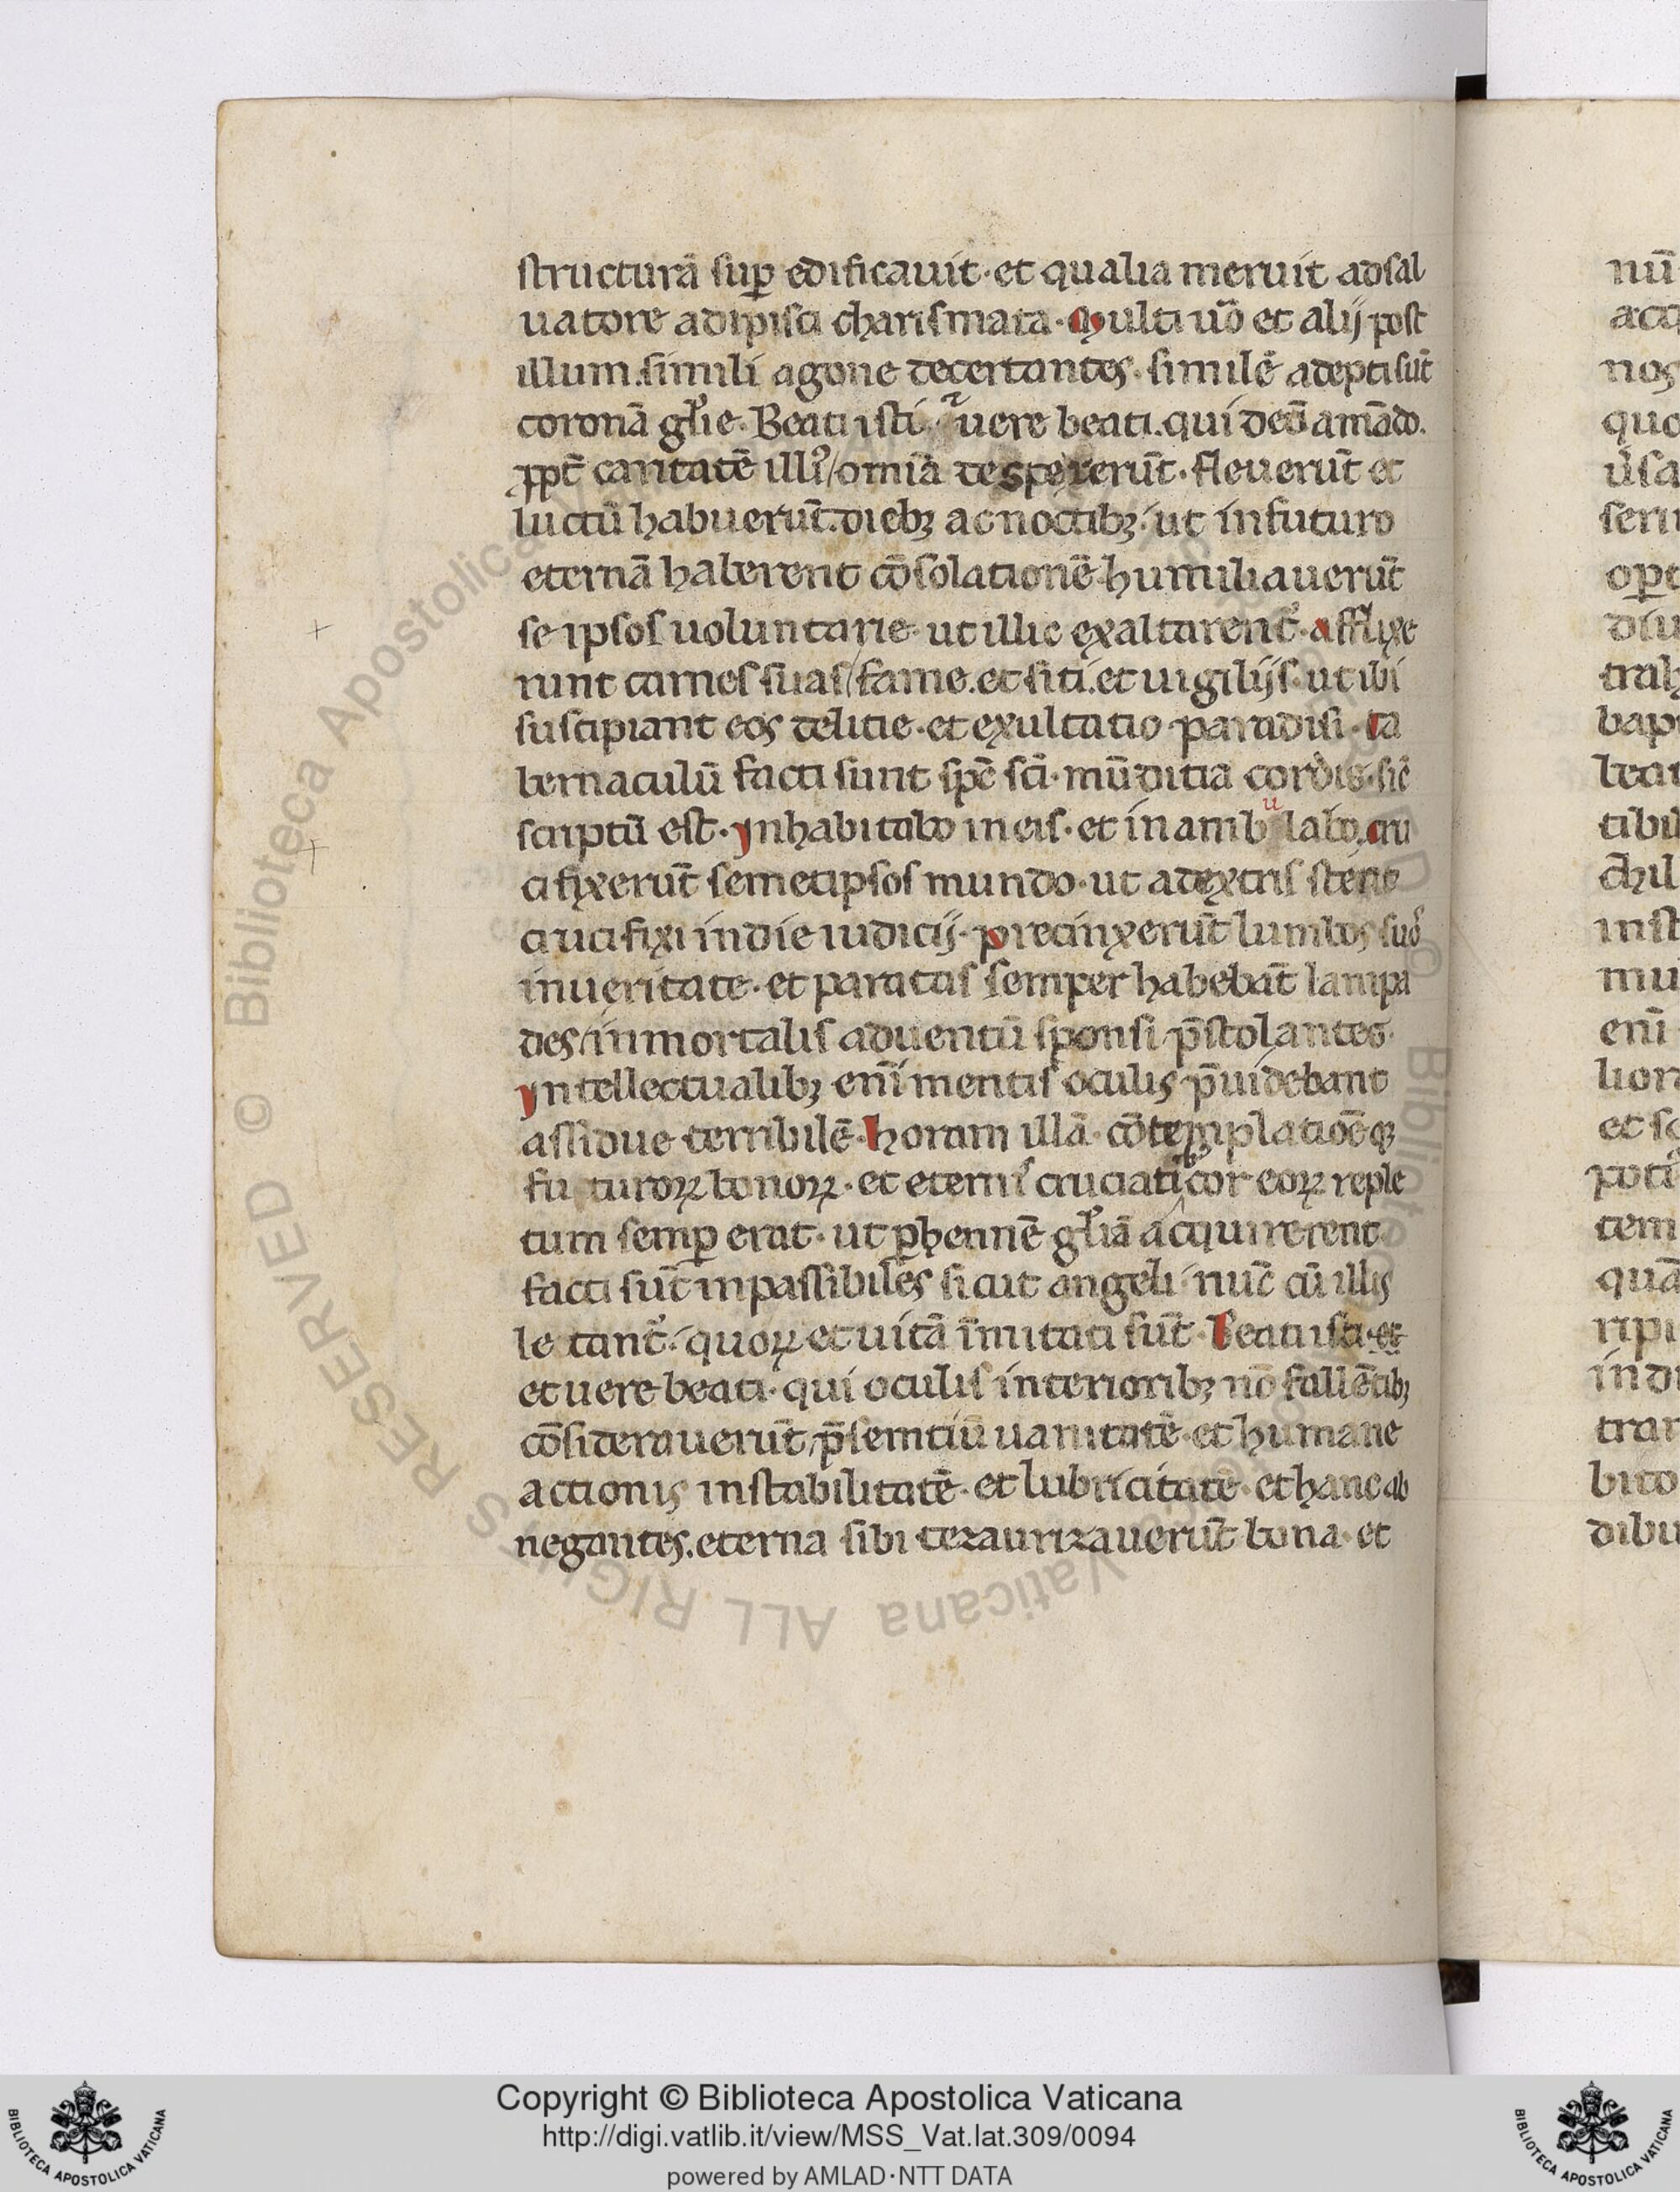 structurā sup̱ edificauit · et qualia meruit adsal
uatore adipisci charismata · Multi ūo et alij post
illum . simili agone decertantes · similē adepti sūt
coronā glīe · Beati isti · ⁊ uere beati . qui deū amādo .
ꝓpt̄ caritatē illi᾽ / omīa despexerūt · fleuerūt et
luctū habuerūt . diebꝫ ac noctibꝫ · ut in futuro
eternā haberent cōsolationē · humiliauerūt
se ipsos uoluntarie · ut illic exaltarent᾽ · afflixe
runt carnes suas / fame . et siti . et uigilijs · ut ibi
suscipiant eos delitie · et exultatio paradisi · ta
bernaculū facti sunt spc̄ sc̄i · mūditia cordis · sic̄
scriptū est · ynhabitabo in eis · et inambulabo . cru
cifixerūt semetipsos mundo · ut adextris stent
crucifixi in die iudicij · precinxerūt lumbos suos
inueritate · et paratas semper habebāt lampa
des / inmortalis aduentū sponsi p̄stolantes ·
yntellectualibꝫ enī mentis oculis p̄uidebant
assidue terribilē · horam illā · cōtemplatioēqꝫ
futuroꝝ bonoꝝ · et eternis cruciatibꝫ cor eoꝝ reple
tum semꝑ erat · ut ꝑhennē glīā acquirerent ·
facti sūt inpassibiles sicut angeli · nūc cū illis
letant᾽ · quoꝝ et uitā īmitati sūt · Beati isti · et
et uere beati · qui oculis interioribꝫ nō fallētibꝫ
cōsiderauerūt / p̄sentiū uanitatē · et humane
actionis instabilitatē · et lubricitatē · et hanc ab
negantes . eterna sibi tezaurizauerūt bona · et
Copyright © Biblioteca Apostolica Vaticana
http://digi.vatlib.it/view/MSS_Vat.lat.309/0094
powered by AMLAD·NTT DATA
BIBLIOTECA APOSTOLICA VATICANA
BIBLIOTECA APOSTOLICA VATICANA